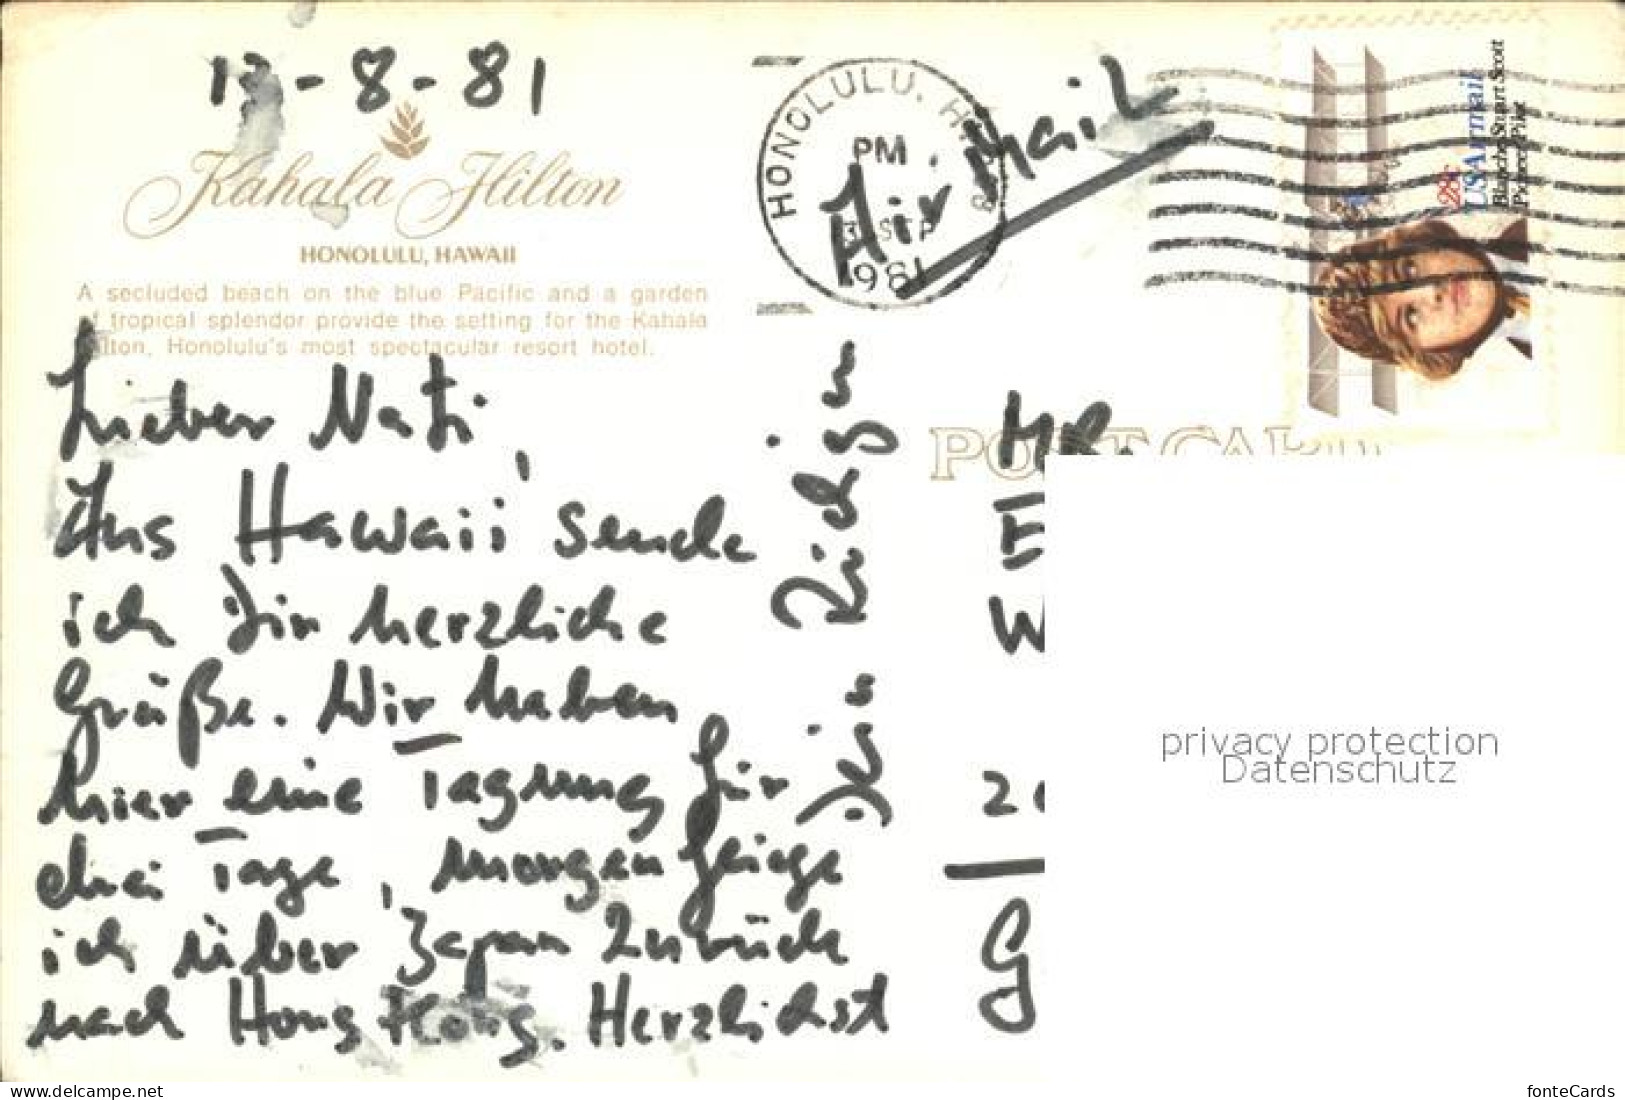 13-8-81
Kahala Hilton
HONOLULU, HAWAII
A secluded beach on the blue Pacific and a garden
of tropical splendor provide the setting for the Kahala
Hilton, Honolulu's most spectacular resort hotel.
Lieber Nati,
Aus Hawaii sende
ich Dir herzliche
Grüße. Wir haben
hier eine Tagung für
drei Tage, morgen fliege
ich über Japan zurück
nach Hong Kong. Herzlichst
HONOLULU, HI
PM
SEP
1981
Air Mail
USAirmail
28c
Blanche Stuart Scott
Pioneer Pilot
POST CARD
MR.
E
W
G
privacy protection
Datenschutz
www.delcampe.net
fonteCards